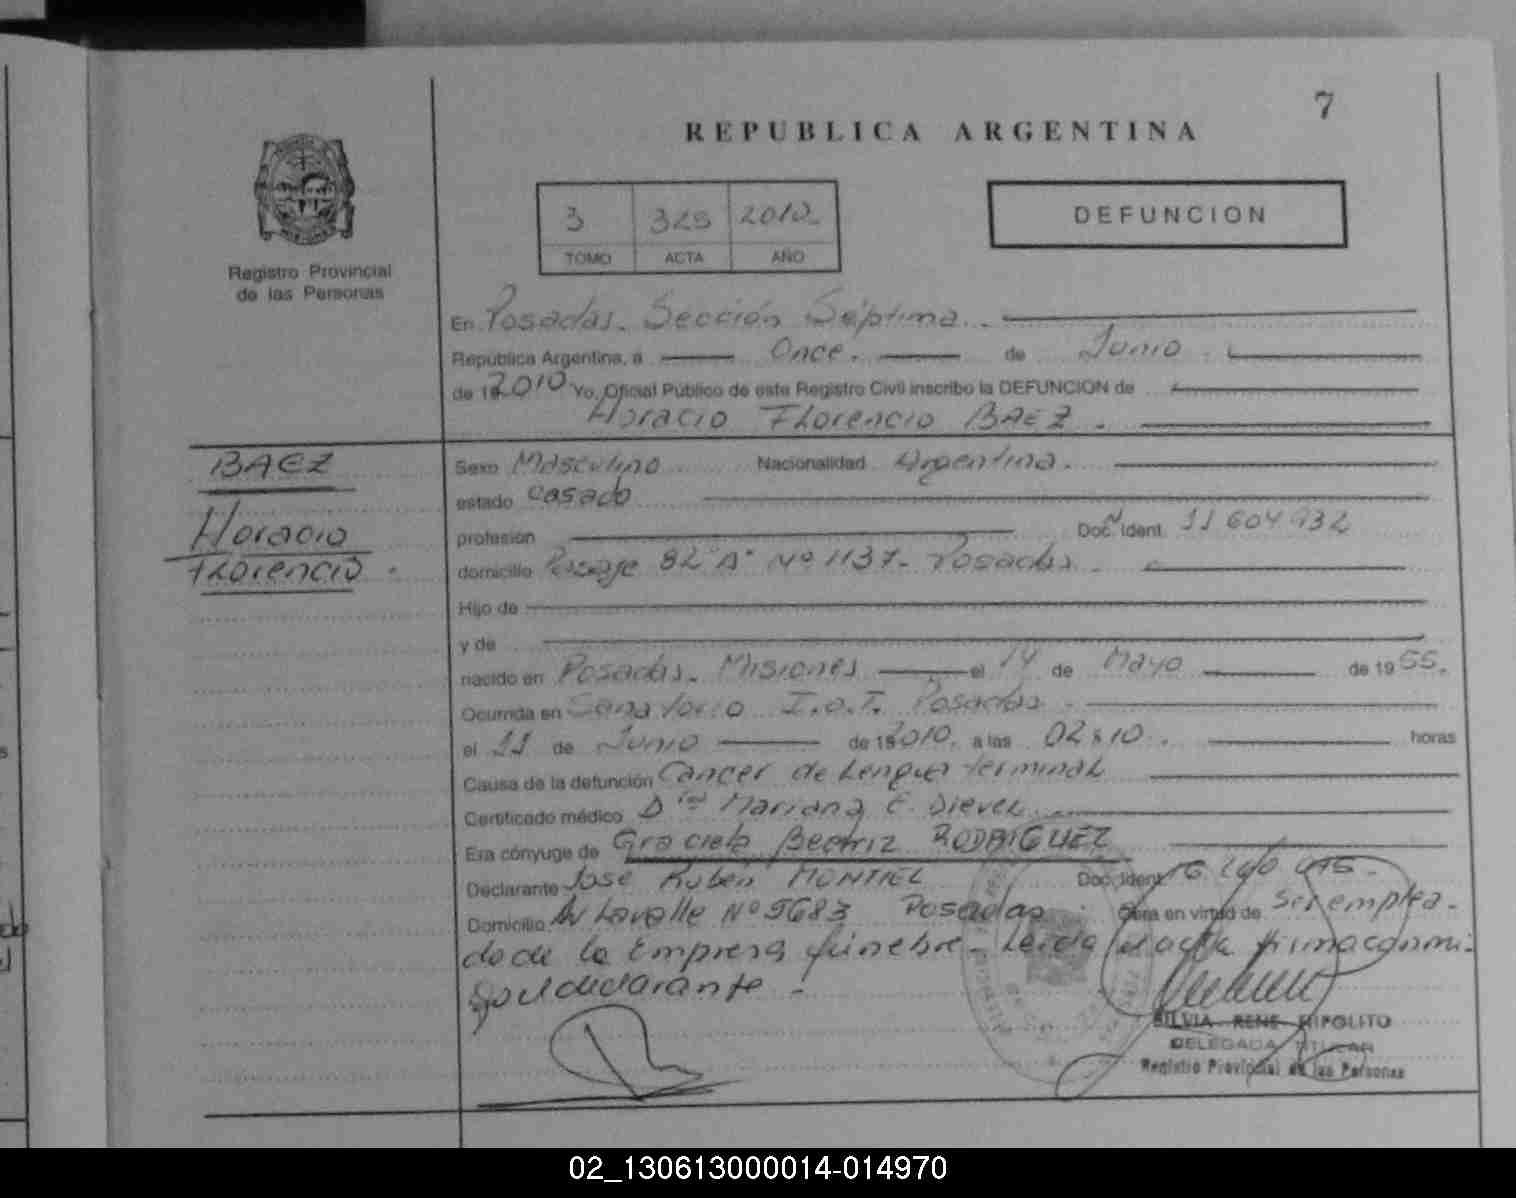 7
REPUBLICA ARGENTINA
3 325 2010
TOMO ACTA AÑO
DEFUNCION
Registro Provincial
de las Personas
En Posadas. Sección Séptima.
República Argentina, a Once. de Junio.
de 19 2010 Yo, Oficial Público de este Registro Civil inscribo la DEFUNCION de
Horacio Florencio BAEZ.
BAEZ
Horacio
Florencio.
Sexo Masculino Nacionalidad Argentina.
estado casado
profesión Doc. Ident. 11 604 932
domicilio Pasaje 82 "A" Nº 1137- Posadas.
Hijo de
y de
nacido en Posadas. Misiones el 14 de Mayo de 1955.
Ocurrida en Sanatorio I.O.T. Posadas.
el 11 de Junio de 19 2010. a las 02:10. horas
Causa de la defunción Cancer de Lengua terminal
Certificado médico Dra Mariana E.
Era cónyuge de Graciela Beatriz RODRIGUEZ
Declarante José Rubén MONTIEL Doc. Ident.
Domicilio Av Lavalle Nº 5683 Posadas. Obra en virtud de Ser emplea-
do de la Empresa fúnebre- Leida el acta firma conmi-
go el declarante-
SILVIA RENE HIPOLITO
DELEGADA TITULAR
Registro Provincial de las Personas
02_130613000014-014970